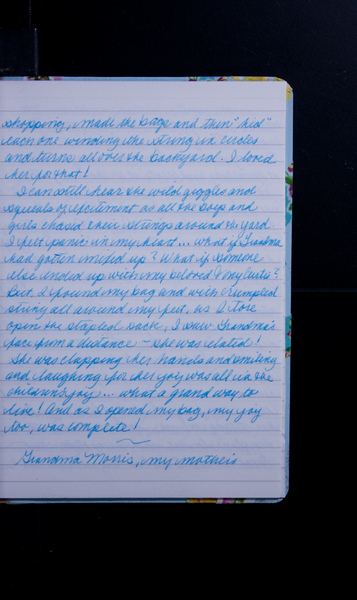 shopping, made the bags and then "hid"
each one winding the string in circles
and turns all over the backyard. I loved
her for that!
I can still hear the wild giggles and
squeals of excitement as all the boys and
girls chased their strings around the yard.
I felt panic in my heart... what if Grandma
had gotten mixed up? What if someone
else ended up with my beloved
But, I found my bag and with crumpled
string all around my feet. As I tore
open the stapled sack, I saw Grandma's
face from a distance - she was elated!
She was clapping her hands and smiling
and laughing for her joy was all in the
children's joy... what a grand way to
live! And as I opened my bag, my joy
too, was complete!
Grandma Morris, my mother's